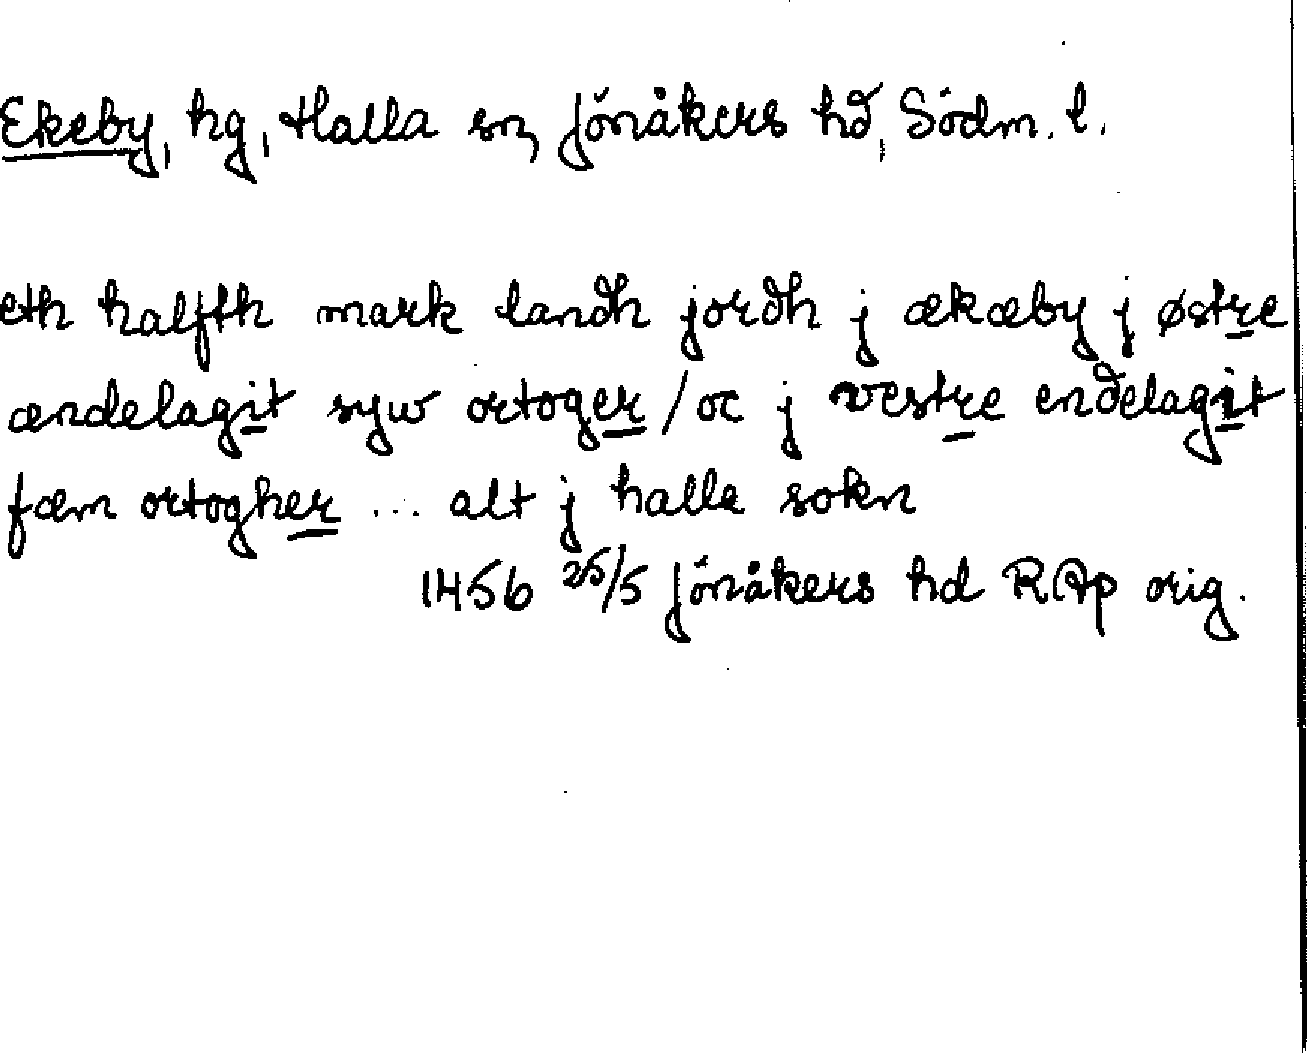 Ekeby, hg, Halla sn, Jönåkers hd, Södm. l.
eth halfth mark landh jordh j ækæby j østre
ændelagit syw ortoger / oc j vestre endelagit
fæm ortogher ... alt j halla sokn
1456 25/5 Jönåkers hd RAp orig.